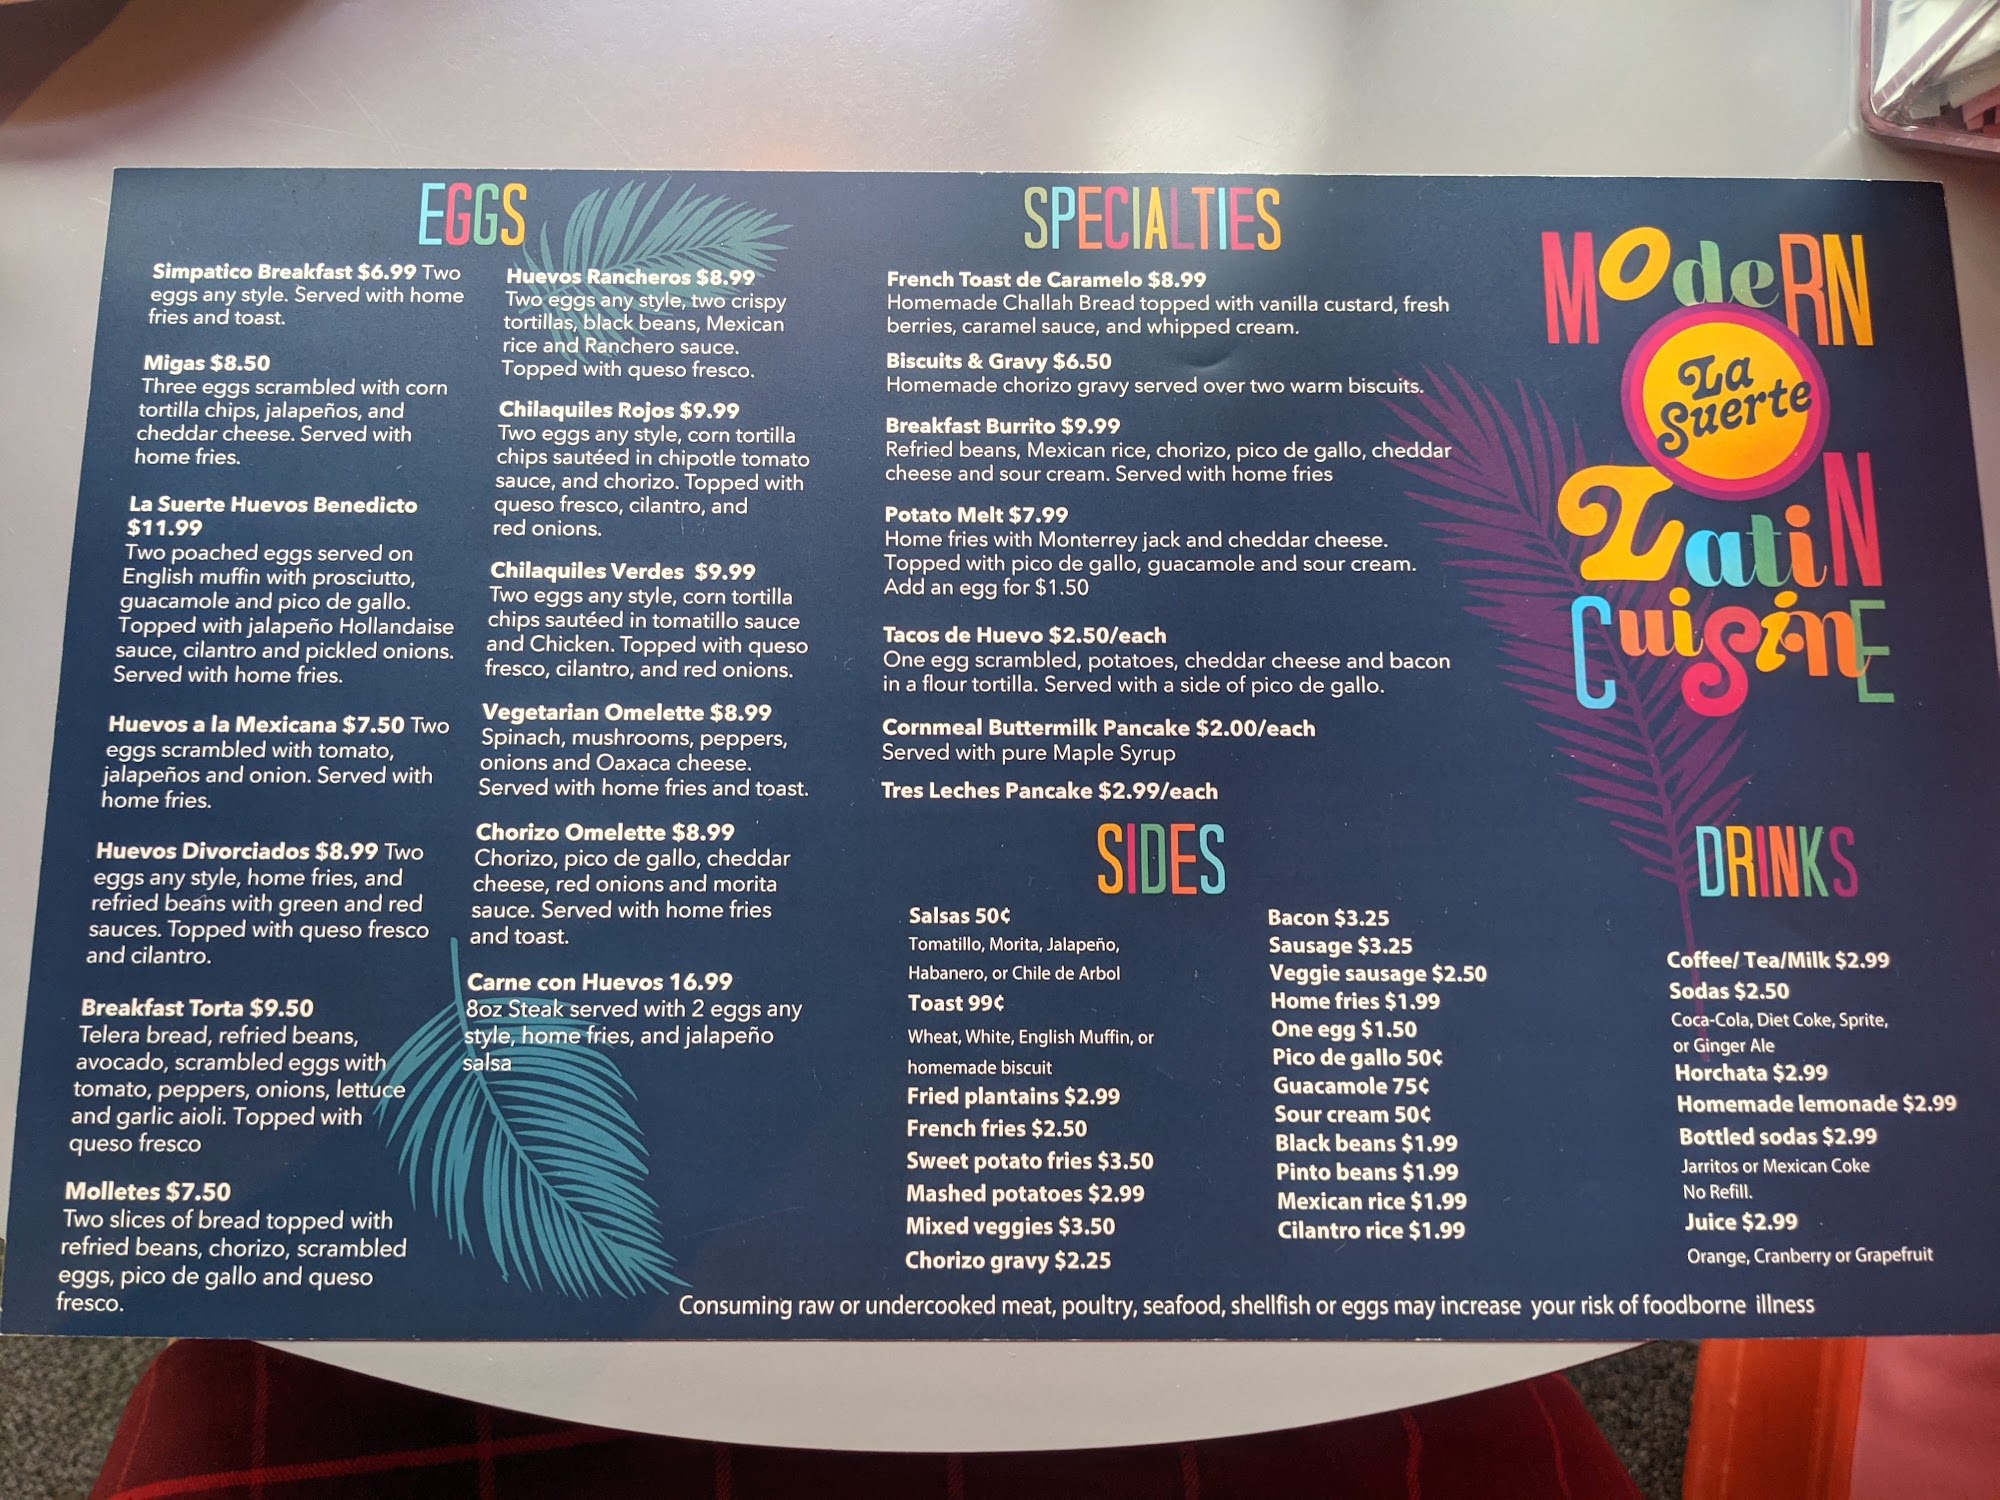 EGGS
Simpatico Breakfast $6.99 Two
eggs any style. Served with home
fries and toast.
Migas $8.50
Three eggs scrambled with corn
tortilla chips, jalapeños, and
cheddar cheese. Served with
home fries.
La Suerte Huevos Benedicto
$11.99
Two poached eggs served on
English muffin with prosciutto,
guacamole and pico de gallo.
Topped with jalapeño Hollandaise
sauce, cilantro and pickled onions.
Served with home fries.
Huevos a la Mexicana $7.50 Two
eggs scrambled with tomato,
jalapeños and onion. Served with
home fries.
Huevos Divorciados $8.99 Two
eggs any style, home fries, and
refried beans with green and red
sauces. Topped with queso fresco
and cilantro.
Breakfast Torta $9.50
Telera bread, refried beans,
avocado, scrambled eggs with
tomato, peppers, onions, lettuce
and garlic aioli. Topped with
queso fresco
Molletes $7.50
Two slices of bread topped with
refried beans, chorizo, scrambled
eggs, pico de gallo and queso
fresco.
Huevos Rancheros $8.99
Two eggs any style, two crispy
tortillas, black beans, Mexican
rice and Ranchero sauce.
Topped with queso fresco.
Chilaquiles Rojos $9.99
Two eggs any style, corn tortilla
chips sautéed in chipotle tomato
sauce, and chorizo. Topped with
queso fresco, cilantro, and
red onions.
Chilaquiles Verdes $9.99
Two eggs any style, corn tortilla
chips sautéed in tomatillo sauce
and Chicken. Topped with queso
fresco, cilantro, and red onions.
Vegetarian Omelette $8.99
Spinach, mushrooms, peppers,
onions and Oaxaca cheese.
Served with home fries and toast.
Chorizo Omelette $8.99
Chorizo, pico de gallo, cheddar
cheese, red onions and morita
sauce. Served with home fries
and toast.
Carne con Huevos 16.99
8oz Steak served with 2 eggs any
style, home fries, and jalapeño
salsa
SPECIALTIES
French Toast de Caramelo $8.99
Homemade Challah Bread topped with vanilla custard, fresh
berries, caramel sauce, and whipped cream.
Biscuits & Gravy $6.50
Homemade chorizo gravy served over two warm biscuits.
Breakfast Burrito $9.99
Refried beans, Mexican rice, chorizo, pico de gallo, cheddar
cheese and sour cream. Served with home fries
Potato Melt $7.99
Home fries with Monterrey jack and cheddar cheese.
Topped with pico de gallo, guacamole and sour cream.
Add an egg for $1.50
Tacos de Huevo $2.50/each
One egg scrambled, potatoes, cheddar cheese and bacon
in a flour tortilla. Served with a side of pico de gallo.
Cornmeal Buttermilk Pancake $2.00/each
Served with pure Maple Syrup
Tres Leches Pancake $2.99/each
SIDES
Salsas 50¢
Tomatillo, Morita, Jalapeño,
Habanero, or Chile de Arbol
Toast 99¢
Wheat, White, English Muffin, or
homemade biscuit
Fried plantains $2.99
French fries $2.50
Sweet potato fries $3.50
Mashed potatoes $2.99
Mixed veggies $3.50
Chorizo gravy $2.25
Bacon $3.25
Sausage $3.25
Veggie sausage $2.50
Home fries $1.99
One egg $1.50
Pico de gallo 50¢
Guacamole 75¢
Sour cream 50¢
Black beans $1.99
Pinto beans $1.99
Mexican rice $1.99
Cilantro rice $1.99
Modern
La
Suerte
Latin
Cuisine
DRINKS
Coffee/ Tea/Milk $2.99
Sodas $2.50
Coca-Cola, Diet Coke, Sprite,
or Ginger Ale
Horchata $2.99
Homemade lemonade $2.99
Bottled sodas $2.99
Jarritos or Mexican Coke
No Refill.
Juice $2.99
Orange, Cranberry or Grapefruit
Consuming raw or undercooked meat, poultry, seafood, shellfish or eggs may increase your risk of foodborne illness